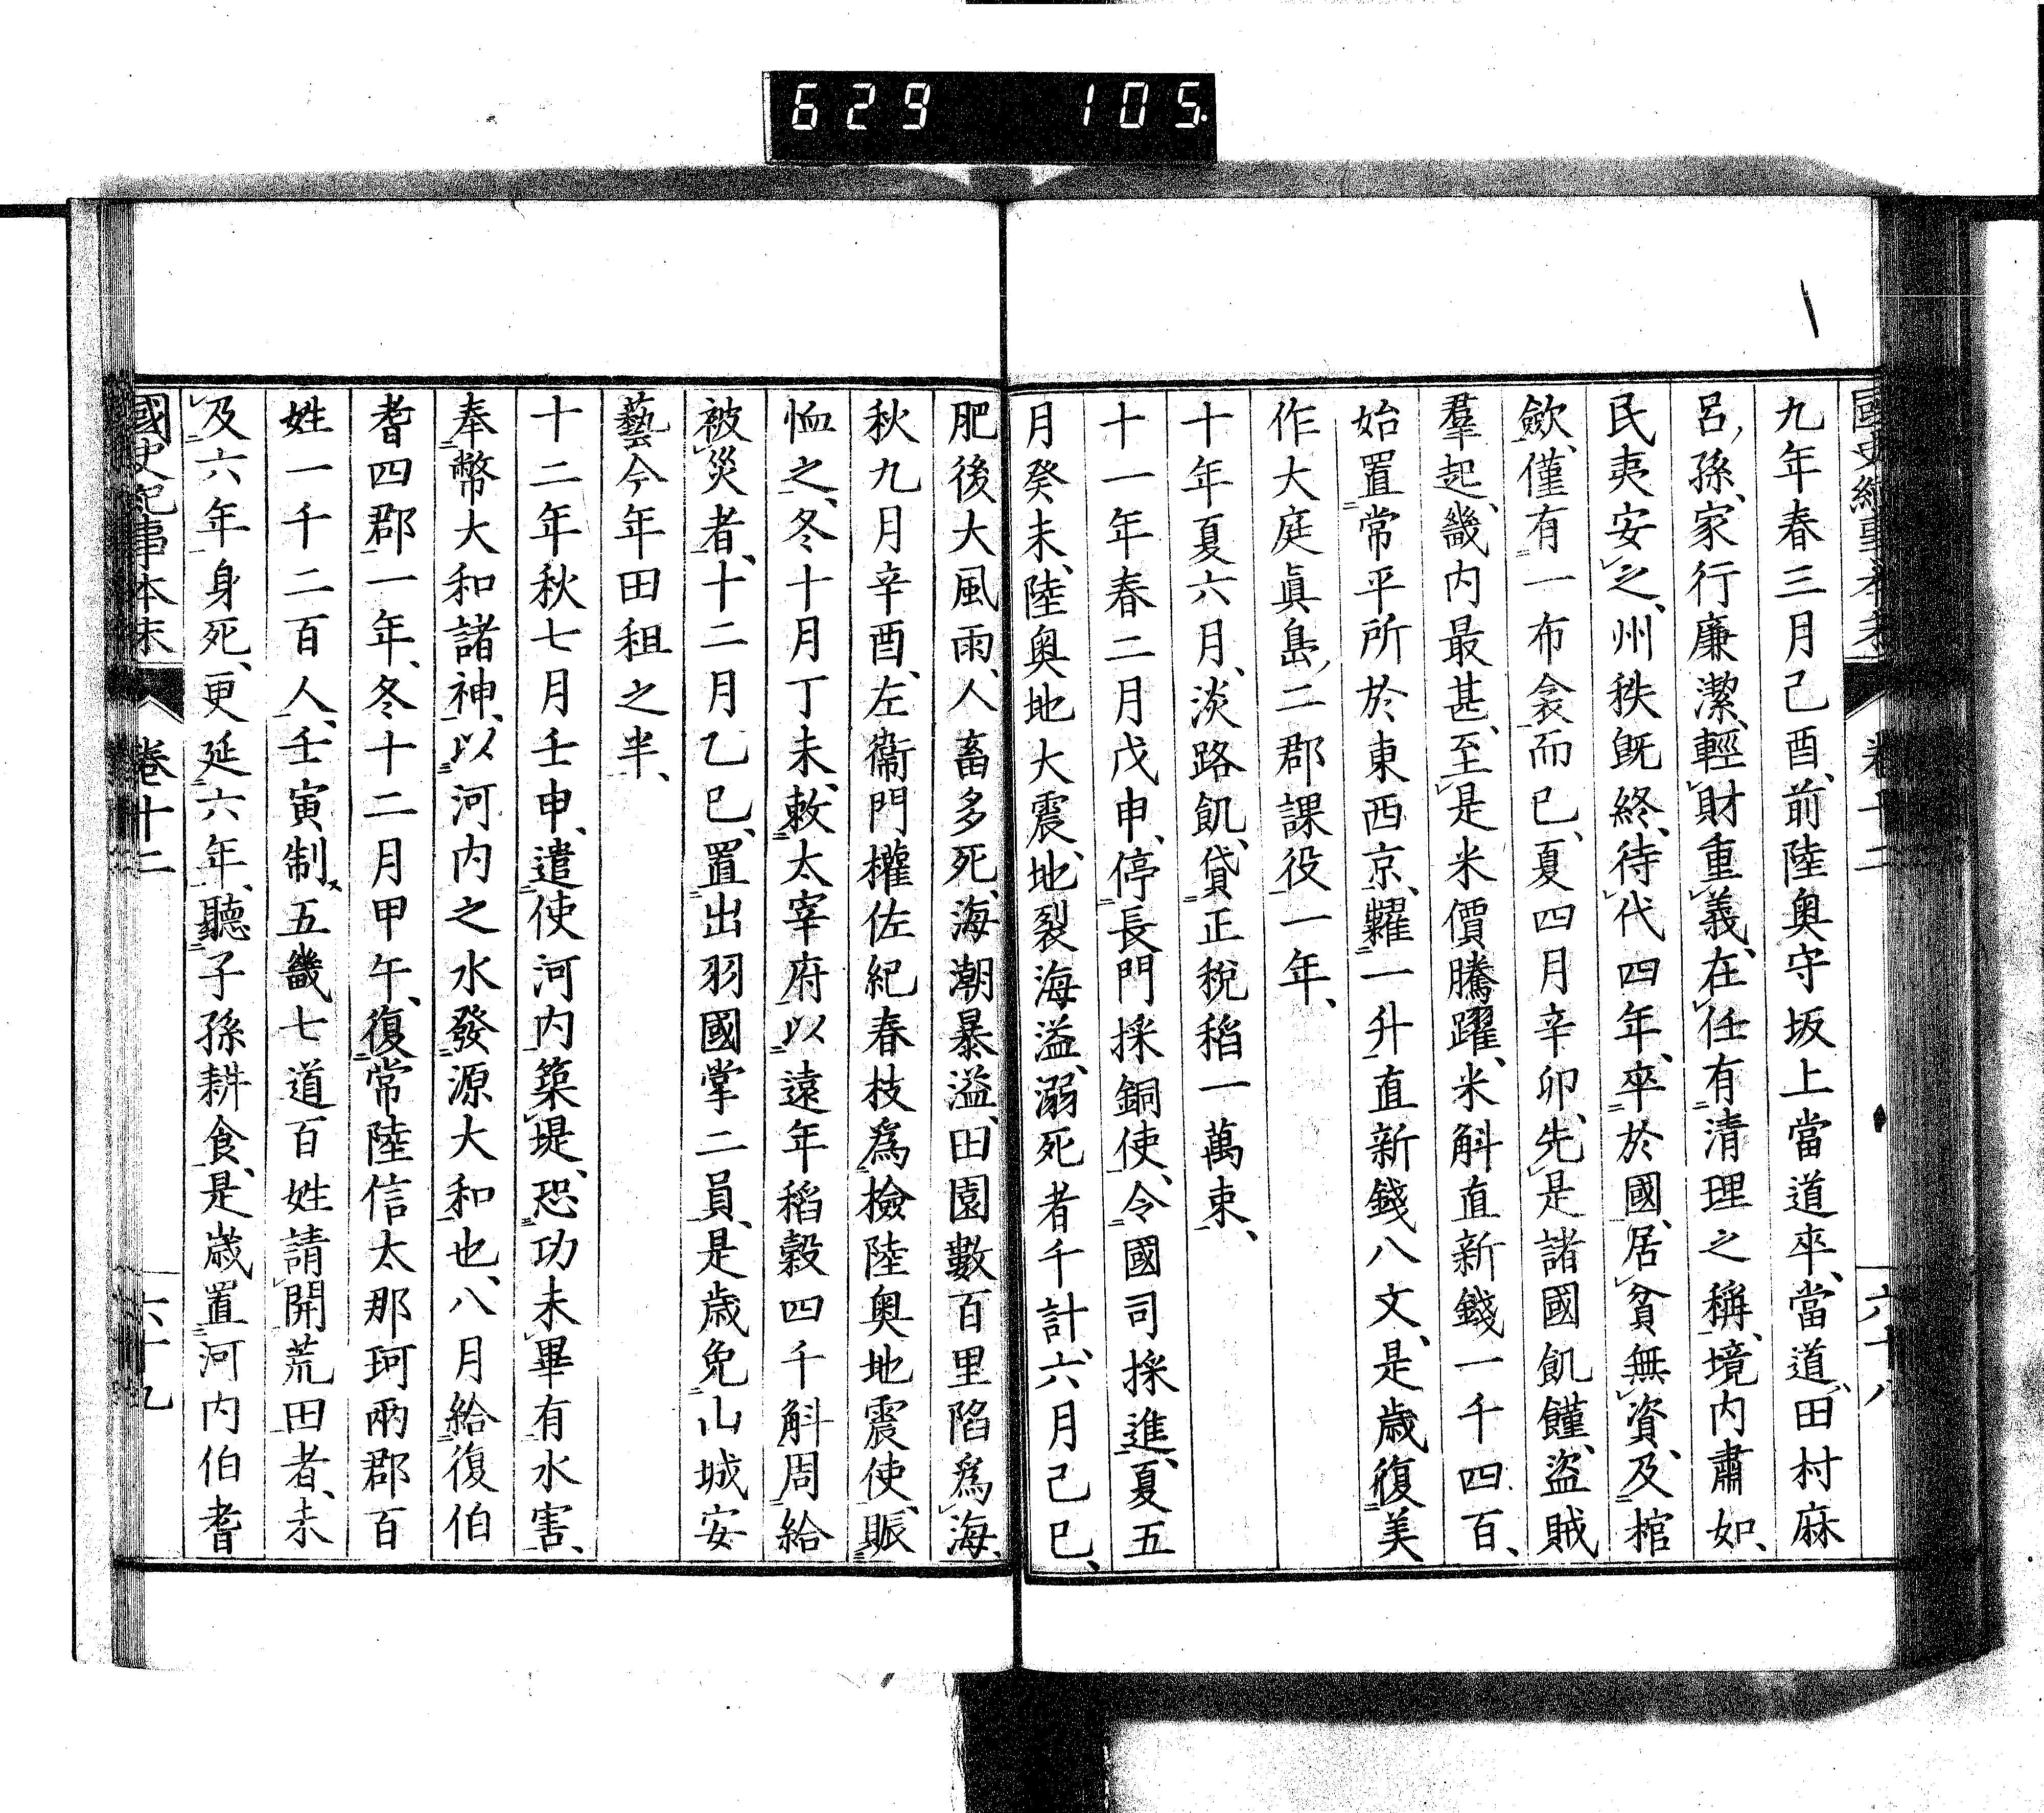 629 105.
國史紀事本末 卷十二 六十八
九年春三月己酉、前陸奥守坂上當道卒、當道、田村麻
呂孫、家行廉潔、輕財重義、在任有清理之稱、境内肅如、
民夷安之、州秩既終、待代四年、卒於國、居貧無資、及棺
斂、僅有一布衾而已、夏四月辛卯、先是諸國飢饉、盜賊
羣起、畿内最甚、至是米價騰躍、米斛直新錢一千四百、
始置常平所於東西京、糶一升直新錢八文、是歲復美
作大庭眞島二郡課役一年、
十年夏六月、淡路飢、貸正稅稻一萬束、
十一年春二月戊申、停長門採銅使、令國司採進、夏五
月癸未、陸奥地大震、地裂海溢、溺死者千計、六月己巳、
肥後大風雨、人畜多死、海潮暴溢、田園數百里陷爲海、
秋九月辛酉、左衞門權佐紀春枝爲檢陸奥地震使、賑
恤之、冬十月丁未、敕太宰府以遠年稻穀四千斛周給
被災者、十二月乙巳、置出羽國掌二員、是歲免山城安
藝今年田租之半、
十二年秋七月壬申、遣使河内築堤、恐功未畢有水害、
奉幣大和諸神、以河内之水發源大和也、八月給復伯
耆四郡一年、冬十二月甲午、復常陸信太那珂兩郡百
姓一千二百人、壬寅制、五畿七道百姓請開荒田者、未
及六年身死、更延六年、聽子孫耕食、是歲置河内伯耆
國史紀事本末 卷十二 六十九